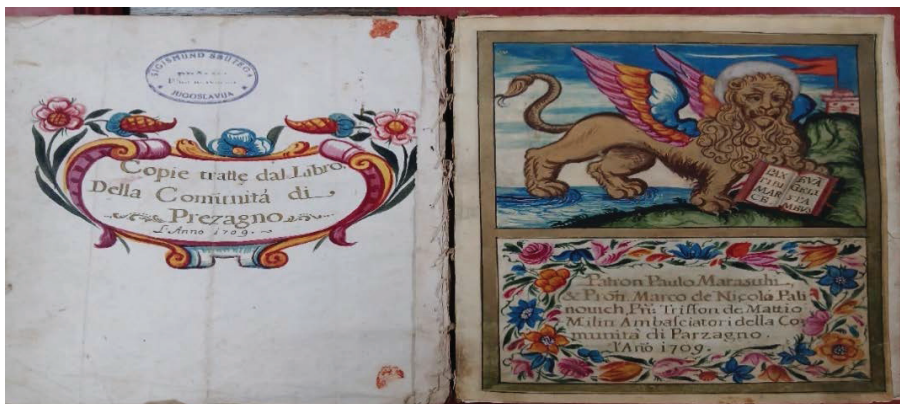 SIGISMUND
JUGOSLAVIJA
Copie tratte dal Libro
Della Comunità di
Prezagno
L'Anno 1709.
PAX
TIBI
MAR
CE
EVÃ
GELI
STA
MEUS
Patron Paulo Marasuhi
& Proñ. Marco de Nicolò Pali
nouich, Pñi Triffon de Mattio
Milin Ambasciatori della Co
munità di Parzagno.
l'Añô 1709.